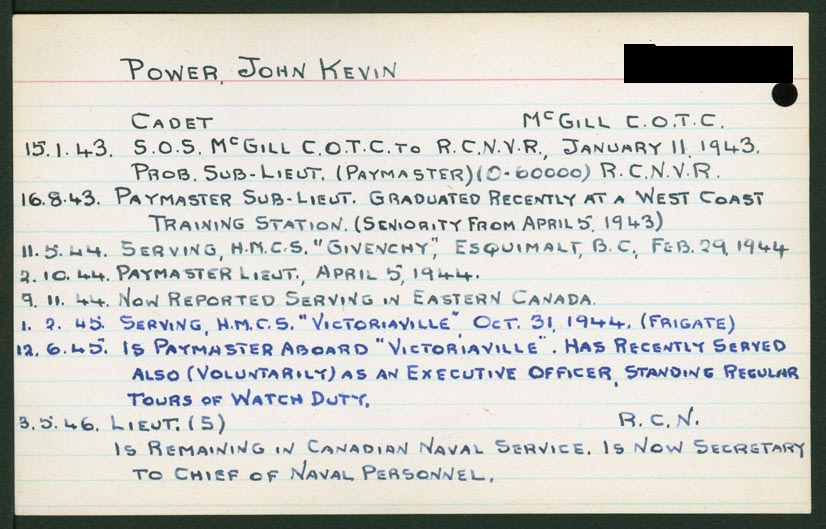 POWER, JOHN KEVIN
CADET McGILL C.O.T.C.
15.1.43. S.O.S. McGILL C.O.T.C. TO R.C.N.V.R., JANUARY 11, 1943.
PROB. SUB-LIEUT. (PAYMASTER) (O-60000) R.C.N.V.R.
16.8.43. PAYMASTER SUB-LIEUT. GRADUATED RECENTLY AT A WEST COAST
TRAINING STATION. (SENIORITY FROM APRIL 5, 1943)
11.5.44. SERVING, H.M.C.S. "GIVENCHY", ESQUIMALT, B.C., FEB. 29, 1944
2.10.44. PAYMASTER LIEUT., APRIL 5, 1944.
9.11.44. NOW REPORTED SERVING IN EASTERN CANADA.
1.2.45. SERVING, H.M.C.S. "VICTORIAVILLE", OCT. 31, 1944. (FRIGATE)
12.6.45. IS PAYMASTER ABOARD "VICTORIAVILLE". HAS RECENTLY SERVED
ALSO (VOLUNTARILY) AS AN EXECUTIVE OFFICER, STANDING REGULAR
TOURS OF WATCH DUTY.
3.5.46. LIEUT. (S) R.C.N.
IS REMAINING IN CANADIAN NAVAL SERVICE. IS NOW SECRETARY
TO CHIEF OF NAVAL PERSONNEL.